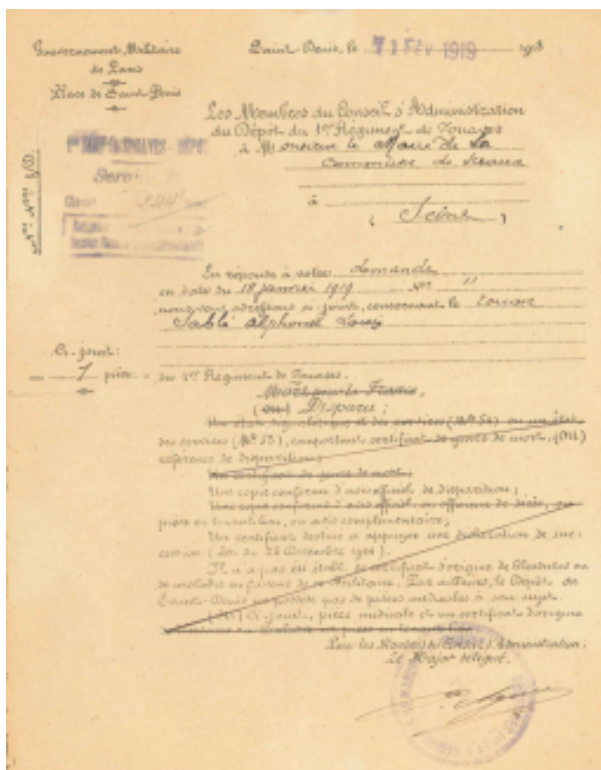 Gouvernement Militaire
de Paris
Place de Saint-Denis
Saint-Denis, le 11 FEV 1919 191
Les Membres du Conseil d'Administration
du Dépôt du 1er Régiment de Zouaves
à Monsieur le Maire de la
Commune de
à
( Seine )
En réponse à votre demande
en date du 18 janvier 1919 No "
nous vous adressons ci-joint, concernant le Zouave
Sablé Alphonse Louis
Ci-joint :
1 pièce
du 1er Régiment de Zouaves.
Mort pour la France,
(ou) Disparu ;
Un état signalétique et des services (No 52) ou un état
des services (No 53), comportant certificat de genre de mort, (ou)
référence de disparition ;
Un certificat de genre de mort ;
Une copie conforme d'avis officiel de disparition ;
Une copie conforme d'avis officiel ou officieux de décès, ou
pièce en tenant lieu, ou avis complémentaire ;
Un certificat destiné à appuyer une déclaration de suc-
cession (Loi du 26 Décembre 1914).
Il n'a pas été établi de certificat d'origine de blessures ou
de maladie en faveur de ce Militaire. Par ailleurs, le Dépôt de
Saint-Denis ne possède pas de pièces médicales à son sujet.
(ou) Ci-joint, pièce médicale et un certificat d'origine
Pour les Membres du Conseil d'Administration :
Le Major délégué,